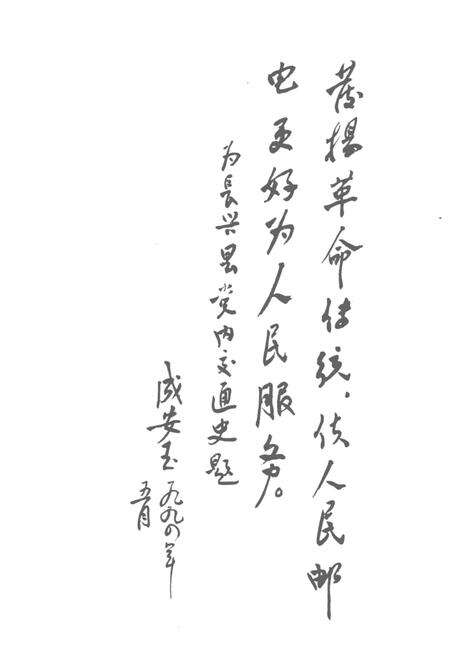 发扬革命传统，使人民邮
电更好为人民服务。
为長兴县党内交通史题
成安玉一九九〇年
五月